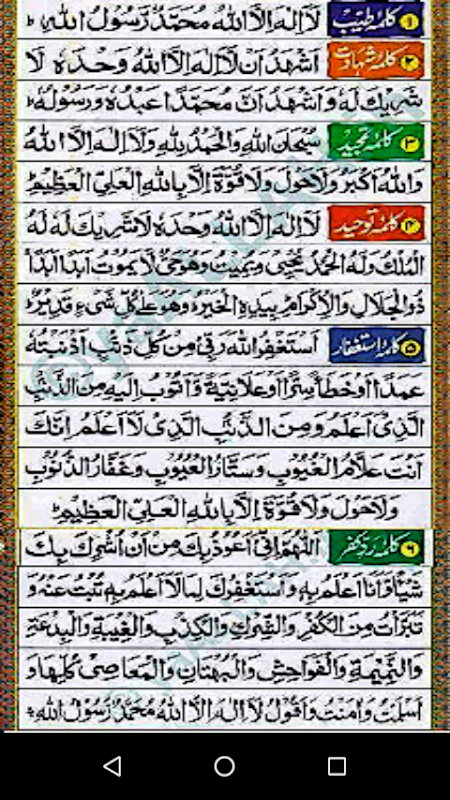 ۱ کلمۂ طیّب لَآ اِلٰهَ اِلَّا اللّٰهُ مُحَمَّدٌ رَّسُوْلُ اللّٰهِ ؕ
۲ کلمۂ شہادت اَشْهَدُ اَنْ لَّآ اِلٰهَ اِلَّا اللّٰهُ وَحْدَهٗ لَا
شَرِيْكَ لَهٗ وَاَشْهَدُ اَنَّ مُحَمَّدًا عَبْدُهٗ وَرَسُوْلُهٗ ؕ
۳ کلمۂ تمجید سُبْحَانَ اللّٰهِ وَالْحَمْدُ لِلّٰهِ وَلَآ اِلٰهَ اِلَّا اللّٰهُ
وَاللّٰهُ اَكْبَرُ وَلَا حَوْلَ وَلَا قُوَّةَ اِلَّا بِاللّٰهِ الْعَلِيِّ الْعَظِيْمِ ؕ
۴ کلمۂ توحید لَآ اِلٰهَ اِلَّا اللّٰهُ وَحْدَهٗ لَا شَرِيْكَ لَهٗ لَهُ
الْمُلْكُ وَلَهُ الْحَمْدُ يُحْيٖ وَيُمِيْتُ وَهُوَ حَيٌّ لَّا يَمُوْتُ اَبَدًا اَبَدًا
ذُو الْجَلَالِ وَالْاِكْرَامِ بِيَدِهِ الْخَيْرُ وَهُوَ عَلٰى كُلِّ شَيْءٍ قَدِيْرٌ ؕ
۵ کلمۂ استغفار اَسْتَغْفِرُ اللّٰهَ رَبِّيْ مِنْ كُلِّ ذَنْبٍ اَذْنَبْتُهٗ
عَمَدًا اَوْ خَطَأً سِرًّا اَوْ عَلَانِيَةً وَّاَتُوْبُ اِلَيْهِ مِنَ الذَّنْبِ
الَّذِيْٓ اَعْلَمُ وَمِنَ الذَّنْبِ الَّذِيْ لَآ اَعْلَمُ اِنَّكَ
اَنْتَ عَلَّامُ الْغُيُوْبِ وَسَتَّارُ الْعُيُوْبِ وَغَفَّارُ الذُّنُوْبِ
وَلَا حَوْلَ وَلَا قُوَّةَ اِلَّا بِاللّٰهِ الْعَلِيِّ الْعَظِيْمِ ؕ
۶ کلمۂ ردِّ کفر اَللّٰهُمَّ اِنِّيْٓ اَعُوْذُ بِكَ مِنْ اَنْ اُشْرِكَ بِكَ
شَيْئًا وَّاَنَا اَعْلَمُ بِهٖ وَاَسْتَغْفِرُكَ لِمَا لَآ اَعْلَمُ بِهٖ تُبْتُ عَنْهُ وَ
تَبَرَّأْتُ مِنَ الْكُفْرِ وَالشِّرْكِ وَالْكِذْبِ وَالْغِيْبَةِ وَالْبِدْعَةِ
وَالنَّمِيْمَةِ وَالْفَوَاحِشِ وَالْبُهْتَانِ وَالْمَعَاصِيْ كُلِّهَا وَ
اَسْلَمْتُ وَاٰمَنْتُ وَاَقُوْلُ لَآ اِلٰهَ اِلَّا اللّٰهُ مُحَمَّدٌ رَّسُوْلُ اللّٰهِ ؕ